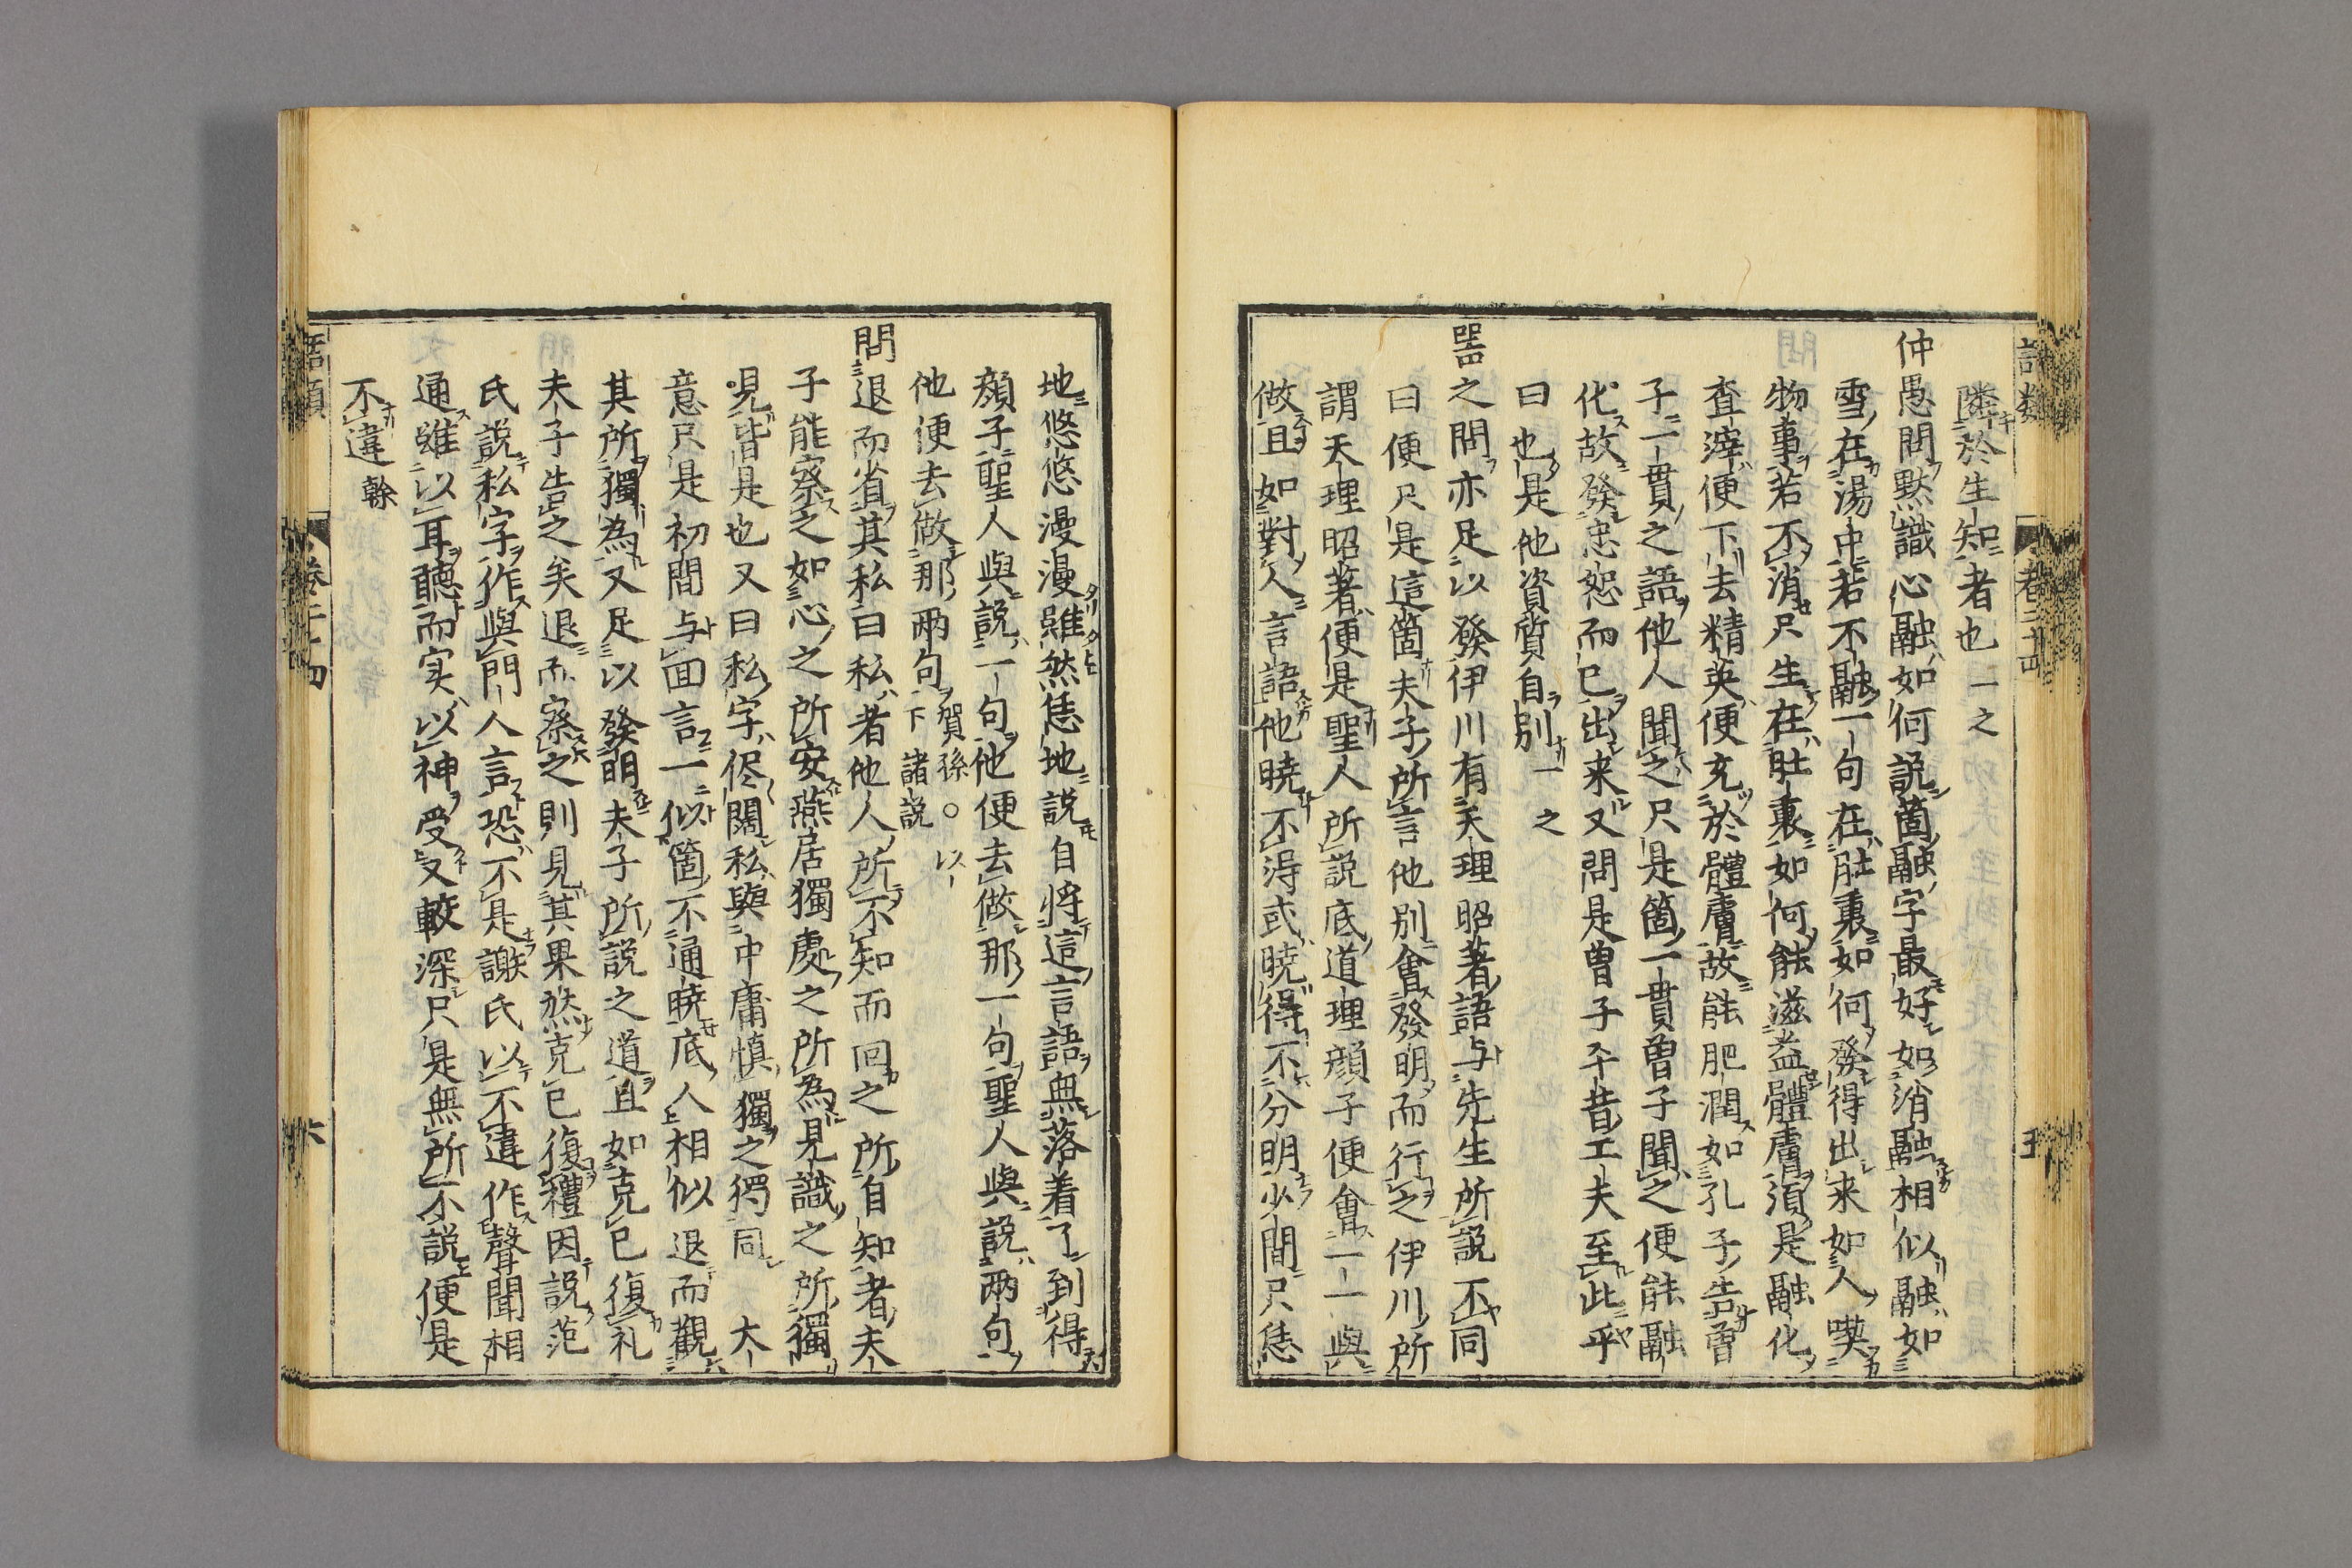 隣於生知者也一之
仲愚問黙識心融如何説箇融字最好如消融相似融如
雪在湯中若不融一句在肚裏如何發得出来如人喫
物事若不消只生在肚裏如何能滋益體膚須是融化
査滓便下去精英便充於體膚故能肥潤如孔子告曽
子一貫之語他人聞之只是箇一貫曽子聞之便能融
化故發忠恕而已出来又問是曽子平昔工夫至此乎
曰也是他資質自別一之
器之問亦足以發伊川有天理昭著語与先生所説不同
曰便只是這箇夫子所言他別會發明而行之伊川所
謂天理昭著便是聖人所説底道理顔子便會一一與
做且如對人言語他暁不得或暁得不分明少間只恁
地悠悠漫漫雖然恁地説自将這言語無落着了到得
顔子聖人與説一句他便去做那一句聖人與説兩句
他便去做那兩句賀孫○以下諸説
問退而省其私曰私者他人所不知而回之所自知者夫
子能察之如心之所安燕居獨處之所為見識之所獨
見皆是也又曰私字儘濶私與中庸慎獨之獨同大
意只是初間与面言一似箇不通暁底人相似退而觀
其所獨為又足以發明夫子所説之道且如克已復礼
夫子告之矣退而察之則見其果然克已復禮因説范
氏説私字作與門人言恐不是謝氏以不違作聲聞相
通雖以耳聴而実以神受又較深只是無所不説便是
不違榦
語類
卷二十四
六